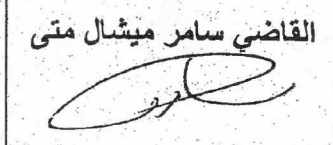 القاضي سامر ميشال متى